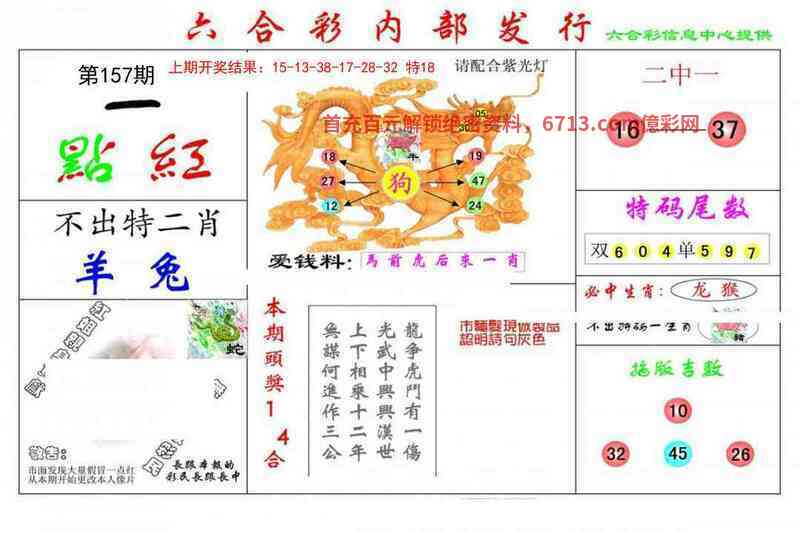 六合彩内部发行
六合彩信息中心提供
第157期
上期开奖结果：15-13-38-17-28-32 特18
请配合紫光灯
一
點 紅
首充百元解锁绝密资料，6713.com億彩网
二中一
16 37
不出特二肖
羊 兔
05
18 19
27 狗 47
12 24
爱钱料：
馬前虎后来一肖
特码尾数
双604单597
必中生肖：龙猴
不出特码一生肖
豬
蛇
本期頭獎14合
龍争虎鬥有一傷
光武中興興漢世
上下相乘十二年
無謀何進作三公
認明詩句灰色
10
32 45 26
敬告：
市海发现大量假冒一点红
从本期开始更改本人像片
長跟本報的
彩民長跟長中